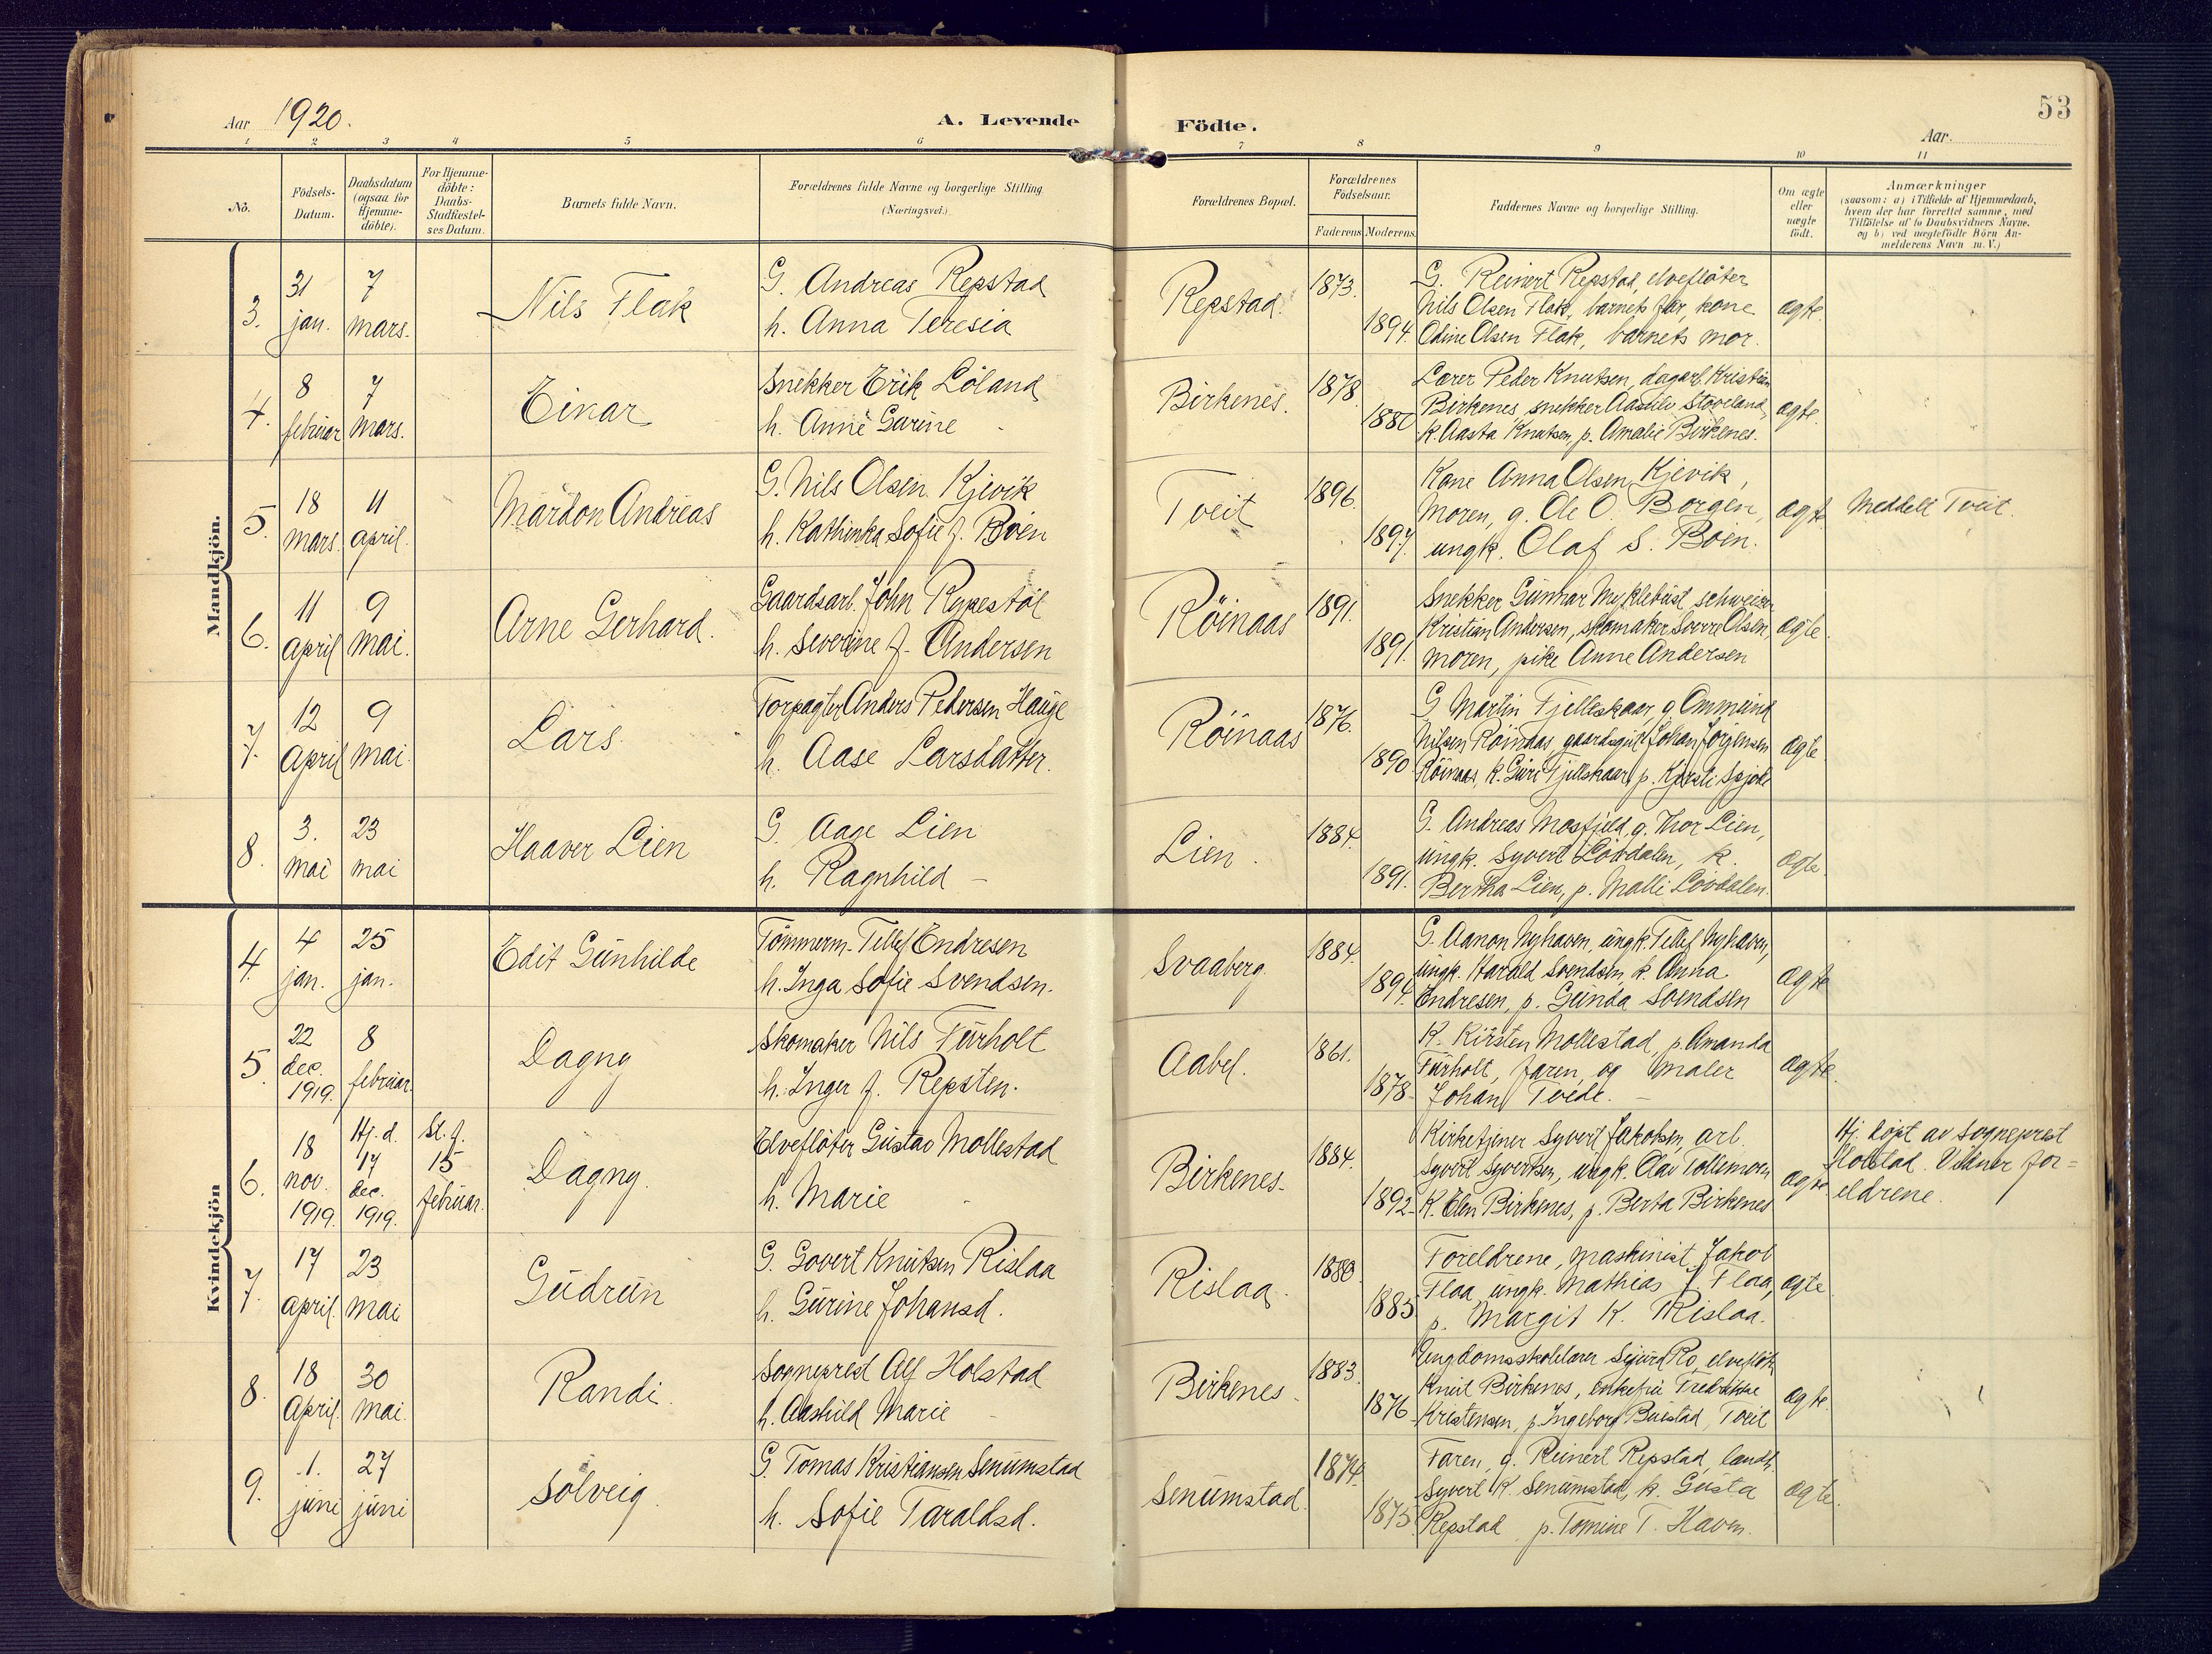 Aar 1920.
A. Levende Födte.
Aar.
53
1 2 3 4 5 6 7 8 9 10 11
No.
Födsels-Datum.
Daabsdatum (ogsaa for Hjemme-döbte).
For Hjemme-döbte: Daabs-Stadfæstel-ses Datum.
Barnets fulde Navn.
Forældrenes fulde Navne og borgerlige Stilling (Næringsvei).
Forældrenes Bopæl.
Forældrenes Födselsaar.
Faderens Moderens
Faddernes Navne og borgerlige Stilling.
Om ægte eller uægte födt.
Anmærkninger
(saasom: a) i Tilfælde af Hjemmedaab, hvem der har forrettet samme, med Tilföielse af to Daabsvidners Navne. og b) ved uægtefödte Börn An-melderens Navn m. V.)
Mandkjön.
3. 31 jan. 7 mars. Nils Flak
G. Andreas Repstad
h. Anna Teresia
Repstad. 1873. 1894.
G. Reinert Repstad, elvefløter
Nils Olsen Flak, barnets far, kone
Odine Olsen Flak, barnets mor.
ægte.
4. 8 februar 7 mars. Einar
Snekker Erik Løland
h. Anne Gurine -
Birkenes. 1878 1880
Lærer Peder Knutsen, dagarb. Kristian
Birkenes, snekker Stoveland,
k. Aasta Knutsen, p. Amalie Birkenes.
ægte.
5. 18 mars. 11 april. Mardon Andreas
G. Nils Olsen Kjevik
h. Kathinka Sofie f. Boen
Tveit 1896. 1897.
Kone Anna Olsen Kjevik,
Moren, g. Ole O. Borgen,
ungk. Olaf S. Boen.
ægte. Meddelt Tveit.
6. 11 April 9 Mai. Arne Gerhard.
Gaardsarb. John Rykestøl
h. Severine f. Andersen
Røinaas 1891. 1891.
Snekker Gunnar Myklebust schweizer
Kristian Andersen, skomaker Sverre Olsen,
moren, pike Anne Andersen
ægte.
7. 12 April 9 mai. Lars
Forpagter Anders Pedersen Hauge
h. Aase Larsdatter.
Røinaas 1876. 1890.
G Martin Fjelleskaar, g Ommund
Nilsen Røinaas, gaardsgut Johan Jørgensen
Røinaas, k. Guri Fjelleskaar, p. Kjersti
ægte
8. 3. mai 23 mai Haaver Lien
G. Aage Lien
h. Ragnhild -
Lien. 1884. 1891.
G. Andreas Mosfjeld, g. Thor Lien,
ungk. Syvert Løvdalen, k.
Bertha Lien, p. Malli Løvdalen.
ægte.
Kvindekjön
4. 4 jan. 25 jan. Edit Gunhilde
Tømmerm. Tellef Endresen
h. Inga Sofie Svendsen.
Svaaberg. 1884. 1894.
G. Aanon Nyhaven, ungk. Tellef Nyhaven,
ungk. Harald Svendsen, k. Anna
Endresen, p. Gunda Svendsen
ægte
5. 22 dec. 1919. 8 februar. Dagny
Skomaker Nils Furholt
h. Inger f. Repsten.
Aabel. 1861. 1878.
K. Kirsten Mollestad, p. Amanda
Furholt, faren, og maler
Johan Tveide.
ægte.
6. 18 nov. 1919. Hj. d. 17 dec. 1919. St. f. 15 februar. Dagny.
Elvefløter Gustav Mollestad
h. Marie
Birkenes. 1884. 1892.
Kirketjener Syvert Jakobsen, arb.
Syvert Syvertsen, ungk. Olav Tollemoen
K. Elen Birkenes, p. Berta Birkenes
ægte
Hj. døpt av sogneprest
Holstad. Vidner for=
eldrene.
7. 17 april. 23 mai Gudrun
G. Govert Knutsen Rislaa
h. Gurine Johansd.
Rislaa. 1880 1885
Foreldrene, maskinist Jakob
Flaa, ungk. Mathias J. Flaa,
p. Margit K. Rislaa.
ægte.
8. 18 April. 30 mai. Randi.
Sogneprest Alf Holstad
h. Aashild Marie -
Birkenes. 1883. 1876.
Ungdomsskolelærer Sigurd Ro, elvefløt.
Knut Birkenes, enkefru Fredrikke
Kristensen, p. Ingeborg Buestad, Tveit
ægte.
9. 1. juni 27 juni Solveig.
G. Tomas Kristiansen Senumstad
h. Sofie Taraldsd.
Senumstad. 1874. 1875.
Faren, g. Reinert Repstad, landh.
Syvert K. Senumstad, k. Gusta
Repstad p. Tomine T. Haven.
ægte.